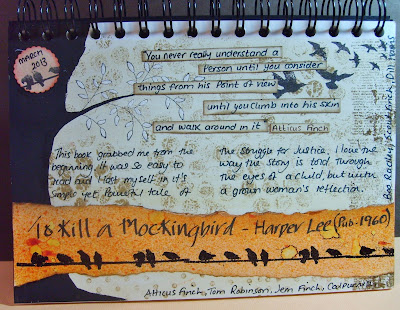 March
2013
You never really understand a
Person until you consider
things from his Point of view
until you climb into his skin
and walk around in it
Atticus Finch
This book grabbed me from the
beginning. It was so easy to
read and I lost myself in it's
simple yet Powerful tale of
the struggle for Justice. I love the
way the story is told through
the eyes of a child, but with
a grown woman's reflection.
To Kill a Mockingbird - Harper Lee (Pub - 1960)
Atticus Finch, Tom Robinson, Jem Finch, Calpurnia
Boo Radley, Scout Finch, Dill